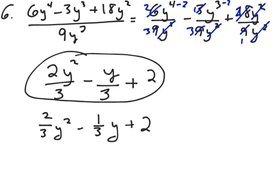 6. (6y⁴ - 3y³ + 18y²)/(9y²) = ²6y⁴⁻²/³9y² - ¹3y³⁻²/³9y² + ²18y²/₁9y²
2y²/3 - y/3 + 2
2/3 y² - 1/3 y + 2